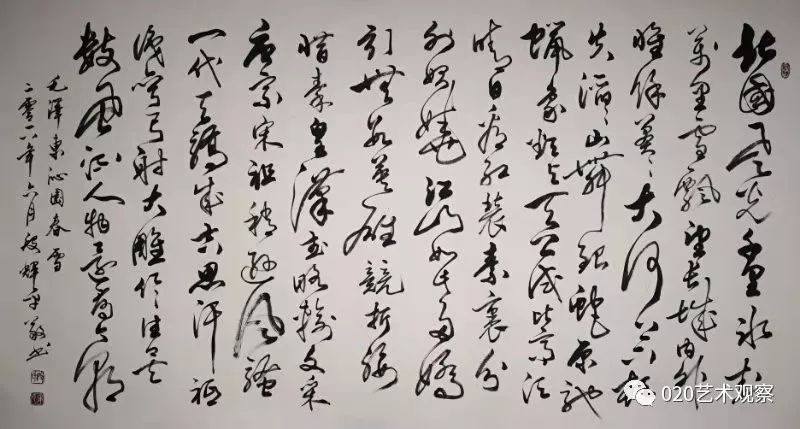 北國風光千里冰封
萬里雪飄望長城內外
惟餘莽莽大河上下頓
失滔滔山舞銀蛇原馳
蠟象欲與天公試比高須
晴日看紅裝素裹分
外妖嬈江山如此多嬌
引無數英雄競折腰
惜秦皇漢武略輸文采
唐宗宋祖稍遜風騷
一代天驕成吉思汗祗
識彎弓射大雕俱往矣
數風流人物還看今朝
毛澤東沁園春雪
二零一八年六月
020艺术观察